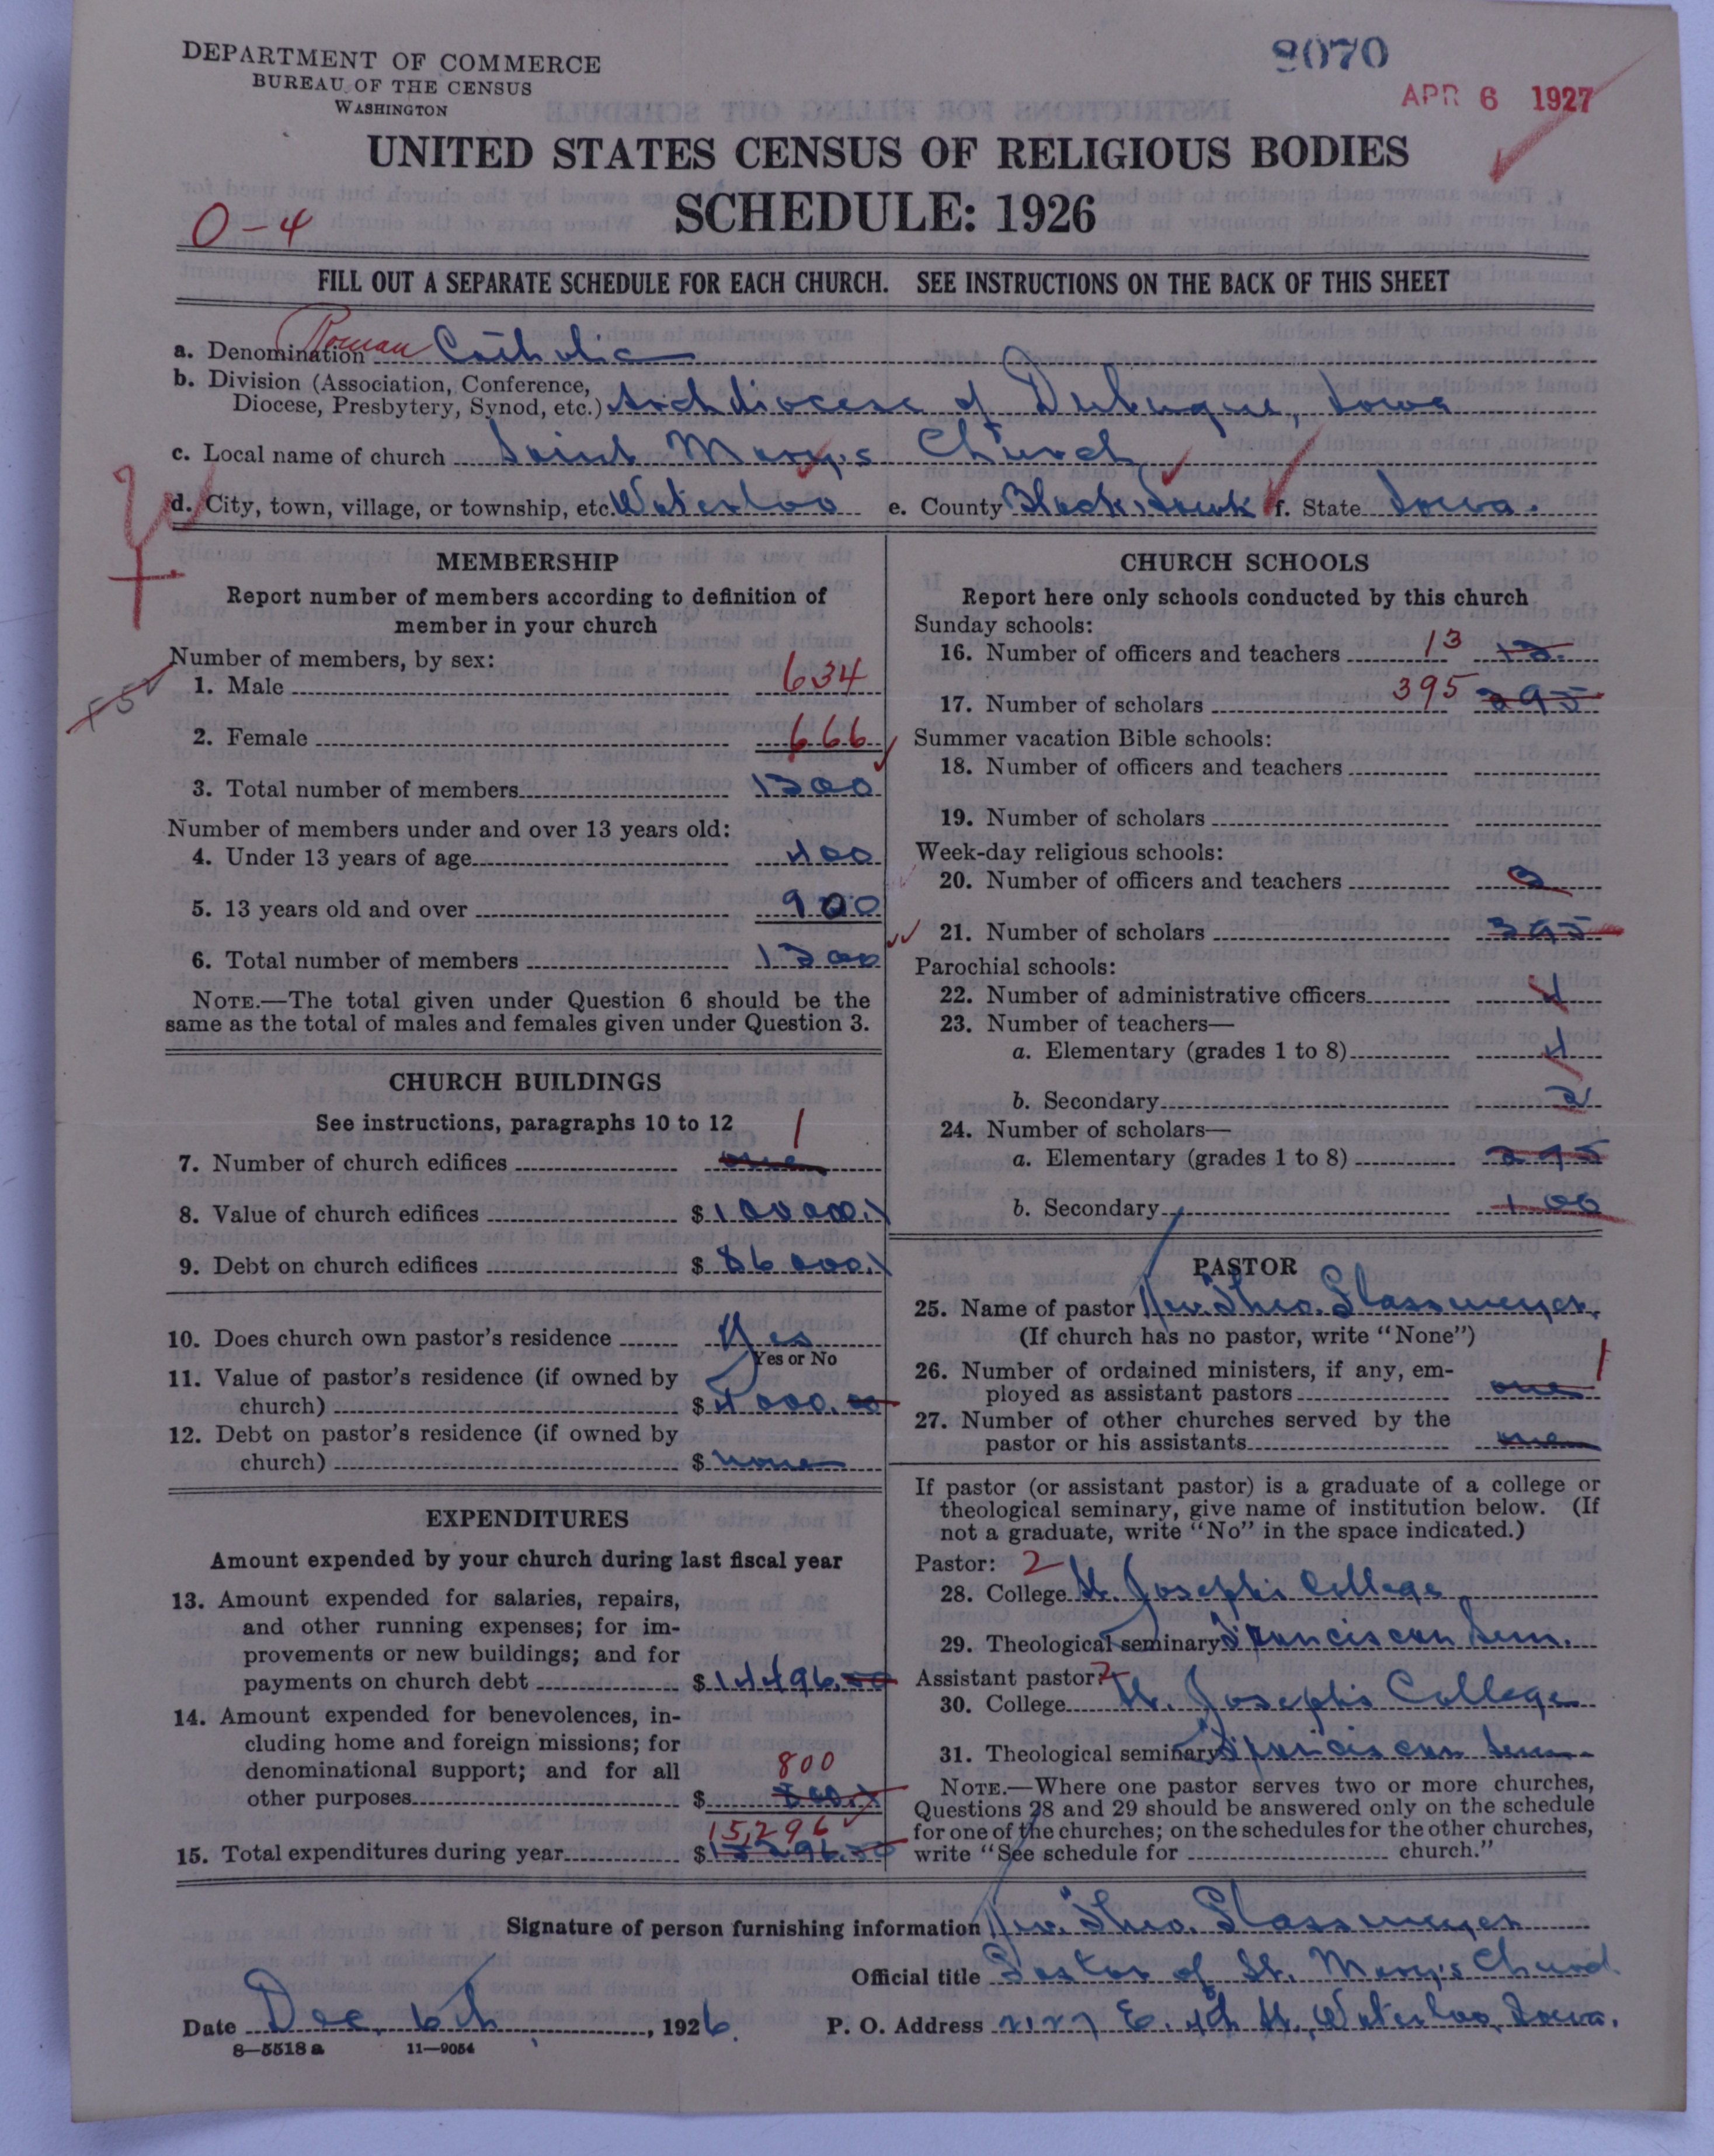 DEPARTMENT OF COMMERCE
BUREAU OF THE CENSUS
WASHINGTON
9070
APR 6 1927
UNITED STATES CENSUS OF RELIGIOUS BODIES
SCHEDULE: 1926
0-4
FILL OUT A SEPARATE SCHEDULE FOR EACH CHURCH. SEE INSTRUCTIONS ON THE BACK OF THIS SHEET
a. Denomination Roman Catholic
b. Division (Association, Conference,
Diocese, Presbytery, Synod, etc.) Archdiocese of Dubuque, Iowa
c. Local name of church Saint Mary's Church
d. City, town, village, or township, etc. Waterloo e. County Black Hawk f. State Iowa.
MEMBERSHIP
Report number of members according to definition of
member in your church
Number of members, by sex:
1. Male 634
2. Female 666
3. Total number of members 1300
Number of members under and over 13 years old:
4. Under 13 years of age 400
5. 13 years old and over 900
6. Total number of members 1300
NOTE.—The total given under Question 6 should be the
same as the total of males and females given under Question 3.
CHURCH BUILDINGS
See instructions, paragraphs 10 to 12
1
7. Number of church edifices one
8. Value of church edifices $100000.
9. Debt on church edifices $86000.
10. Does church own pastor's residence Yes
Yes or No
11. Value of pastor's residence (if owned by
church) $4000.00
12. Debt on pastor's residence (if owned by
church) $none
EXPENDITURES
Amount expended by your church during last fiscal year
13. Amount expended for salaries, repairs,
and other running expenses; for im-
provements or new buildings; and for
payments on church debt $14496.50
14. Amount expended for benevolences, in-
cluding home and foreign missions; for
denominational support; and for all 800
other purposes $800.
15,296
15. Total expenditures during year $15296.50
CHURCH SCHOOLS
Report here only schools conducted by this church
Sunday schools:
16. Number of officers and teachers 13
17. Number of scholars 395 395
Summer vacation Bible schools:
18. Number of officers and teachers
19. Number of scholars
Week-day religious schools:
20. Number of officers and teachers
21. Number of scholars 395
Parochial schools:
22. Number of administrative officers 4
23. Number of teachers—
a. Elementary (grades 1 to 8) 4
b. Secondary 2
24. Number of scholars—
a. Elementary (grades 1 to 8) 295
b. Secondary 100
PASTOR
25. Name of pastor Rev. Theo. Stassmeyer.
(If church has no pastor, write "None")
26. Number of ordained ministers, if any, em- 1
ployed as assistant pastors one
27. Number of other churches served by the
pastor or his assistants
If pastor (or assistant pastor) is a graduate of a college or
theological seminary, give name of institution below. (If
not a graduate, write "No" in the space indicated.)
Pastor: 2
28. College St. Joseph's College
29. Theological seminary Franciscan Sem.
Assistant pastor: 2
30. College St. Joseph's College
31. Theological seminary Franciscan Sem.
NOTE.—Where one pastor serves two or more churches,
Questions 28 and 29 should be answered only on the schedule
for one of the churches; on the schedules for the other churches,
write "See schedule for church."
Signature of person furnishing information Rev. Theo. Stassmeyer
Official title Pastor of St. Mary's Church
Date Dec. 6th, 1926. P. O. Address E. 4th St., Waterloo, Iowa.
8—5518 a 11—9054